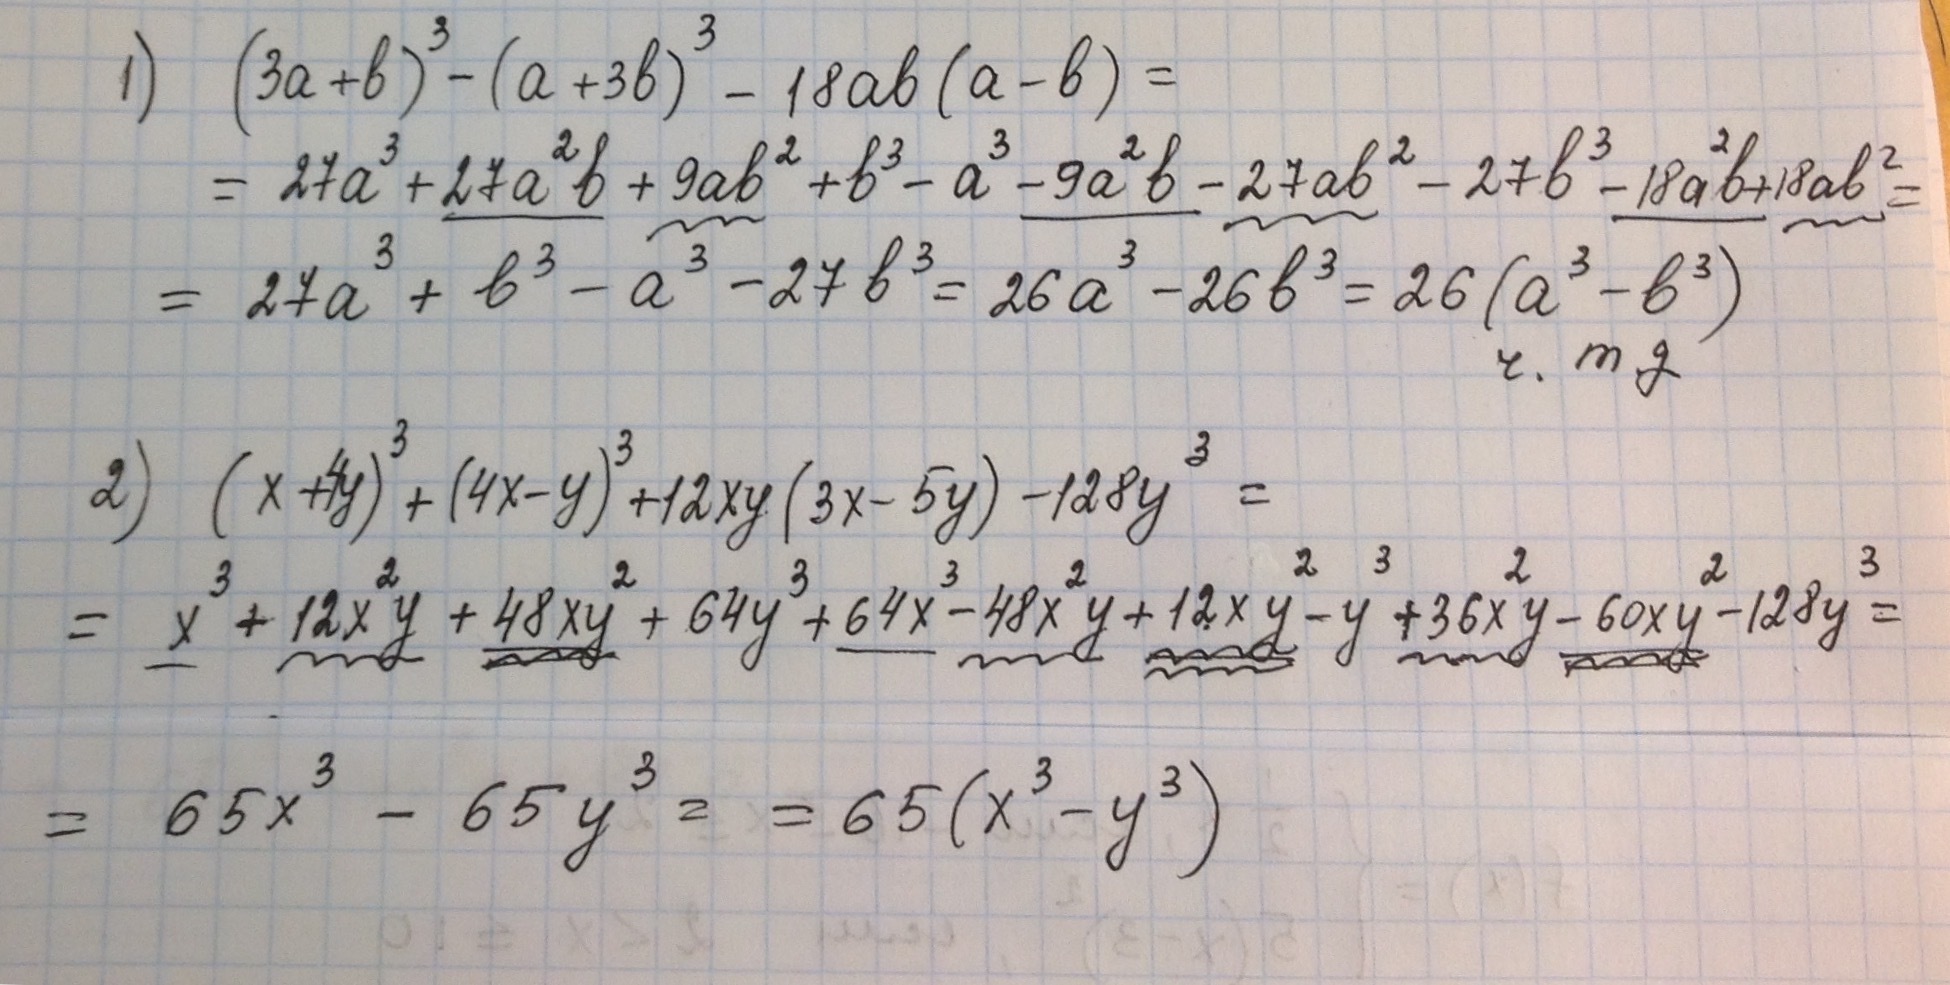 1) (3a+b)³-(a+3b)³-18ab(a-b)=
= 27a³+27a²b+9ab²+b³-a³-9a²b-27ab²-27b³-18a²b+18ab²=
= 27a³+b³-a³-27b³=26a³-26b³=26(a³-b³)
ч. т д
2) (x+4y)³+(4x-y)³+12xy(3x-5y)-128y³ =
= x³+12x²y+48xy²+64y³+64x³-48x²y+12xy²-y³+36x²y-60xy²-128y³=
= 65x³ - 65y³ = = 65(x³-y³)